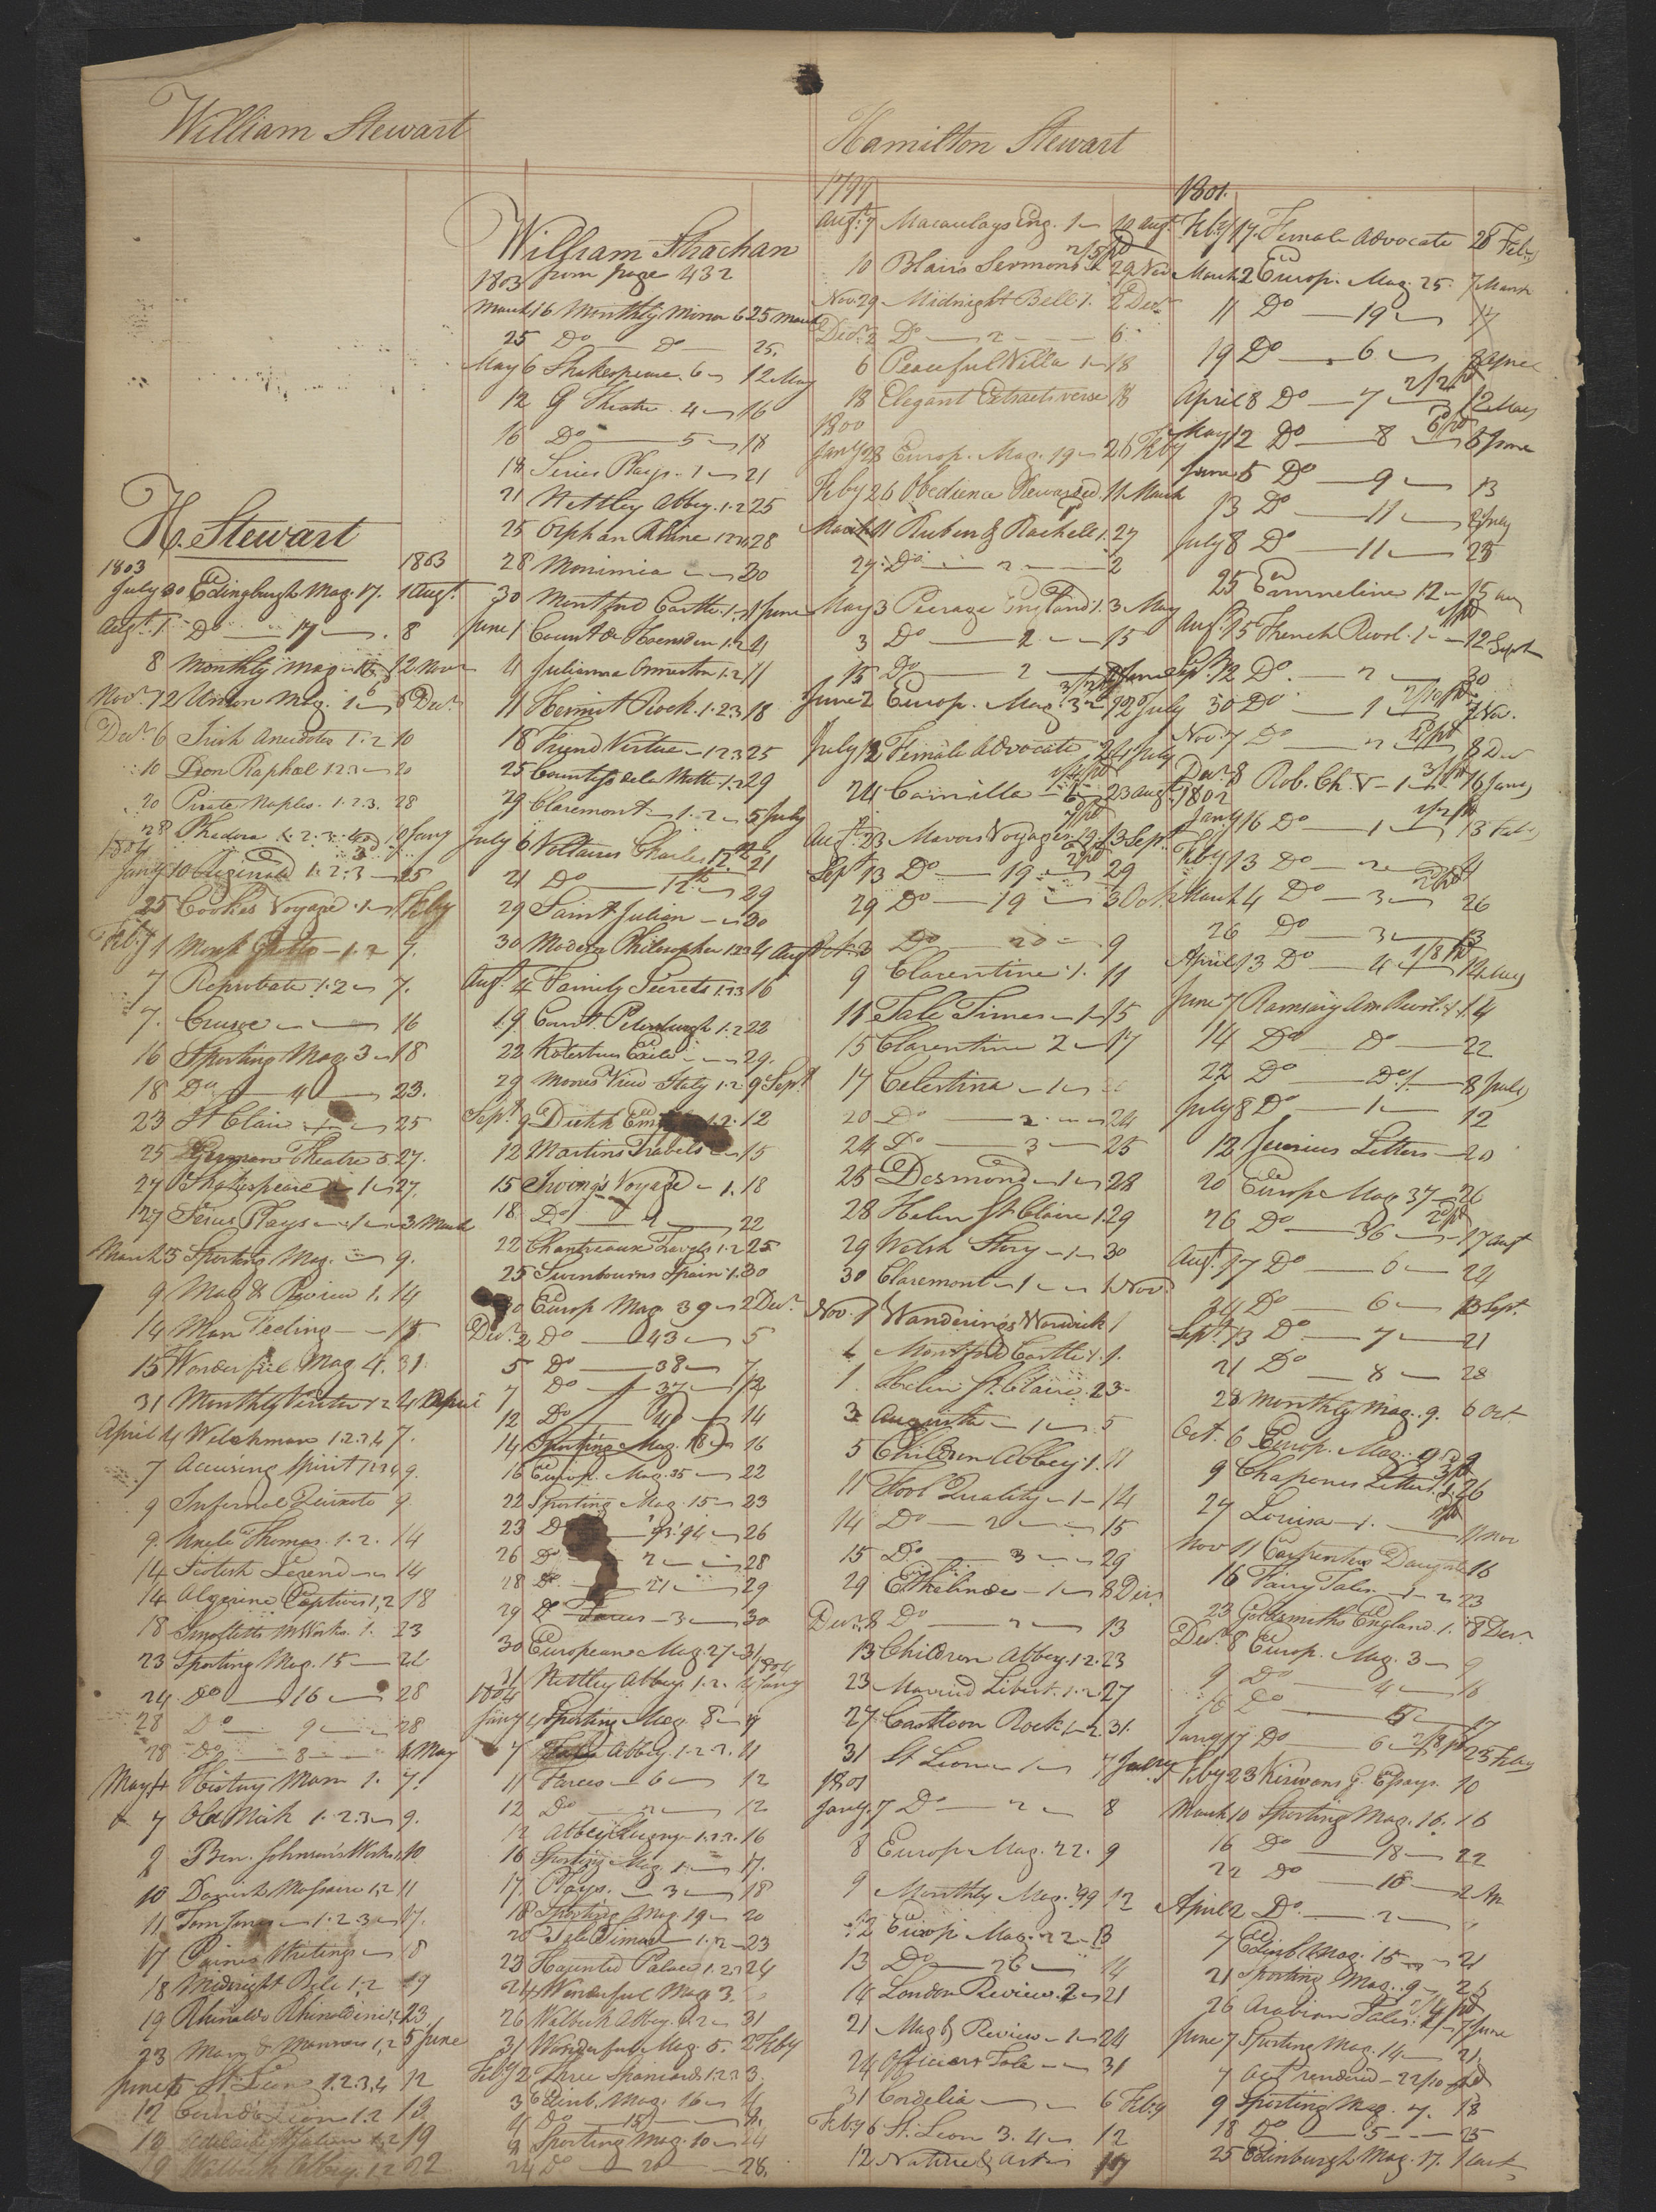 William Stewart
H. Stewart
1803 1803
July 30 Edingburgh Mag. 17. 1 Augt.
Augt. 1 Do — 17 — 8
8 Monthly Mag 12 Novr
Novr 12 Union Mag. 1 6 Decr.
Decr. 6 Irish Anecdotes 1.2 10
10 Don Raphael 1 2 3 — 20
20 Pirate Naples. 1.2.3. 28
28 Phedora 1.2.3.4 10 Jany
1804
Jany 10 Reginald 1.2.3 — 25
25 Cooke's Voyage 1 — 1 Feby
Feby 1 Monk Grotto — 1.2 7.
7 Reprobate 1.2 — 7.
7. Crusoe — 16
16 Sporting Mag. 3 — 18
18 Do — 4 — 23.
23 St Clair — 25
25 German Theatre 5 27.
27 Shakespeare 1 — 27.
27 Series Plays — 1 — 3 March
March 3 Sporting Mag. — 9.
9 Mag & Review 1. 14
14 Man Feeling — 15
15 Wonderful Mag 4. 31
31 Monthly Visitor 1 2 4 April
April 4 Welchman 1.2.3.4 7.
7 Accusing Spirit 1 2 3 4 9.
9 Infernal Quixote 9
9. Uncle Thomas. 1.2. 14
14 Scotish Legend — 14
14 Algerine Captive 1,2 18
18 Smolletts M Works. 1. 23
23 Sporting Mag. 15 — 24
24 Do — 16 — 28
28 Do — 9 — 28
28 Do — 8 — 4 May
May 4 History Man 1. 7.
7 Old Nick 1.2.3 — 9.
9 Ben. Johnson's Works 1 10
10 Danish Massacre 1,2 11
11 Tom Jones — 1.2.3 — 17.
17 Paines Writings — 18
18 Midnight Bell 1,2 19
19 Rhinaldo Rhinoldini 1,2 23.
23 Mary & Manners 1,2 5 June
June 5 St. Leon 1.2.3,4 12
12 Count St Leon 1.2 13
13 Adelaide St Julian 1,2 19
19 Walbeck Abbey. 1,2 22
William Strachan
1803 from page 432
March 16 Monthly Mirror 6 25 March
25 Do — Do — 25.
May 6 Shakespeare. 6 — 12 May
12 G Theatre. 4 — 16
16 Do — 5 — 18
18 Series Plays. 1 — 21
21 Nettley Abbey. 1.2 25
25 Orphan Rhine 1 2 3 28
28 Monimia — 30
30 Montford Castle. 1. 1 June
June 1 Count de Hoensden 1.2 4
4 Julianna Ormeston 1.2 11
11 Hermit Rock. 1.2.3 18
18 Friend Virtue — 1 2 3 25
25 Countess de la Motte 1.2 29
29 Claremont — 1.2 — 5 July
July 6 Voltaires Charles 12th 21
21 Do — 12th — 29
29 Saint Julien — 30
30 Modern Philosopher 1 2 3 4 Augt
Augt. 4 Family Secrets 1.2 3 16
19 Court Petersburgh 1.2 22
22 Kotzebues Exile — 29.
29 Moores View Italy 1.2 9 Sept
Sept. 9 Dutch 1.2. 12
12 Martins Travels — 15
15 Irving's Voyage — 1. 18
18 Do — 2 — 22
22 Chantreaux Travels 1.2 25
25 Swinbourns Spain. 1. 30
30 Europ Mag. 39 — 2 Decr.
Decr. 2 Do — 43 — 5
5 Do — 38 — 7
7 Do — 37 — 12
12 Do — 40 — 14
14 Sporting Mag. 18 — 16
16 Europ. Mag. 35 — 22
22 Sporting Mag. 15 — 23
23 Do 93.'94 — 26
26 Do 2 — 28
28 Do 21 — 29
29 Farces — 3 — 30
30 European Mag. 27 — 31
31 Nettley Abbey. 1.2. 4 Jany 1804
1804
Jany 4 Sporting Mag. 8 — 7
7 Abbey. 1.2.3. 11
11 Farces — 6 — 12
12 Do — 2 — 12
12 Abbey Clugny — 1.2.3. 16
16 Sporting Mag. 1 — 17.
17. Plays. — 3 — 18
18 Sporting Mag 19 — 20
20 Tale Times — 1.2 — 23
23 Haunted Palace 1.2.3 24
24 Wonderful Mag 3. "
26 Walbeck Abbey. 1.2 — 31
31 Wonderful Mag. 5. 2 Feby
Feby 2 Three Spaniards 1.2.3 3.
3 Edinb. Mag. 16 — 4
4 Do — 15 — 8.
8 Sporting Mag. 10 — 24
24 Do — 20 — 28.
Hamilton Stewart
1799
Augt. 7 Macaulays Eng. 1 — 10 Augt.
10 Blairs Sermons 2/5 pd 29 Nov
Nov. 29 Midnight Bell 1. 2 Decr
Decr. 2 Do — 2 — 6
6 Peaceful Villa 1 — 18
18 Elegant Extracts verse 18
1800
Jany 28 Europ. Mag. 19 — 26 Feby
Feby 26 Obedience Rewarded. 11 March
March 11 Ruben & Rachell 1. 27
27. Do — 2 — 2
May 3 Peerage England. 1. 3 May
3 Do — 2 — 15
15 Do — 2 — June
June 2 Europ. Mag. 3 — 12 July
July 12 Female Advocate 24 July
24 Camilla — 23 Augt.
Augt. 23 Mavors Voyages 19. 13 Sept.
Sept 13 Do — 19 — 29
29 Do — 19 — 3 Oct.
Oct. 3 Do — 20 — 9
9 Clarentine. 1. 11
11 Tale Times — 1 — 15
15 Clarentine 2 — 17
17 Celestina — 1 — 20
20 Do — 2. — 24
24 Do — 3 — 25
25 Desmond — 1 — 28
28 Helen St Claire 1. 29
29 Welsh Story — 1 — 30
30 Claremont — 1 — 1 Nov.
Nov. 1 Wanderings Warwick 1
1 Montford Castle 1. 1.
1. Helen St. Claire. 2 3
3 Augusta — 1 — 5
5 Children Abbey. 1. 11
11 Fool Quality — 1 — 14
14 Do — 2 — 15
15 Do — 3 — 29
29 Ethelinde — 1 — 8 Decr.
Decr. 8 Do — 2 — 13
13 Children Abbey. 1.2. 23
23 Married Libert. 1.2. 27
27 Castleton Rock 1 — 2. 31.
31 St Leon — 1 — 7 Jany
1801
Jany. 7 Do — 2 — 8
8 Europ Mag. 22. 9
9 Monthly Mag. '99 12
12 Europ Mag. 22 — 13
13 Do — 26 — 14
14 London Review. 2 — 21
21 Mag & Review — 1 — 24
24 Officers Tale — 31
31 Cordelia — 6 Feby
Feby 6 St. Leon 3. 4 — 12
12 Nature & Art — 17
1801.
Feby 17. Female Advocate 28 Feby
March 2 Europ. Mag. 25. 7 March
11 Do — 19 — 17
19 Do — 6 — 8 April
April 8 Do — 7 — 2/2 pd 12 May
May 12 Do — 8 — 6 pd 5 June
June 5 Do — 9 — 13
13 Do — 11 — 8 July
July 8 Do — 11 — 25
25 Emmeline 12 — 15 Au
Aug. 15 French Revol. 1 — 12 Sept
Sept. 12 Do. — 2 — 30
30 Do — 1 — 7 Nov.
Nov. 7 Do — 2 — 8 Decr
Decr. 8 Rob. Ch. V — 1 — 16 Jany
1802
Jany 16 Do — 1 — 13 Feby
Feby 13 Do — 2 — 4
March 4 Do — 3 — 2 pd 26
26 Do — 3 — 13
April 13 Do — 4 — 1/8 pd 14 May
June 7 Ramsay Am. Revol. 1. 14
14 Do — Do — 22
22 Do — Do 1. — 8 July
July 8 Do — 1 — 12
12 Junius Letters — 20
20 Europ Mag 37 — 26
26 Do — 36 — 17 Augt
Augt. 17 Do — 6 — 24
24 Do — 6 — 13 Sept.
Sept. 13 Do. — 7 — 21
21 Do — 8 — 28
28 Monthly Mag. 9. 6 Oct.
Oct. 6 Europ. Mag. 9
9 Chapones Letters. 1. 26
27 Louisa — 1. — 11 Nov
Nov 11 Carpenters Daugtr 16
16 Fairy Tales — 1 — 2 23
23 Goldsmiths England. 1. 8 Decr.
Decr. 8 Europ. Mag. 3 — 9
9 Do — 4 — 16
16 Do — 5 — 17
Jany 17 Do — 6 — 2/8 pd 23 Feby
Feby 23 Kirwans G. Essays. 10
March 10 Sporting Mag. 16. 16
16 Do — 18 — 22
22 Do — 18 — 2 Ap
April 2 Do. — 2 — "
7 Edinb. Mag. 15 — 21
21 Sporting Mag. 9 — 26
26 Arabian Tales. 4 — 7 June
June 7 Sporting Mag. 14 — 21
7 Act rendered — 22/10 pd
9 Sporting Mag. 7. 18
18 Do — 5 — 25
25 Edinburgh Mag. 17. 1 Aut